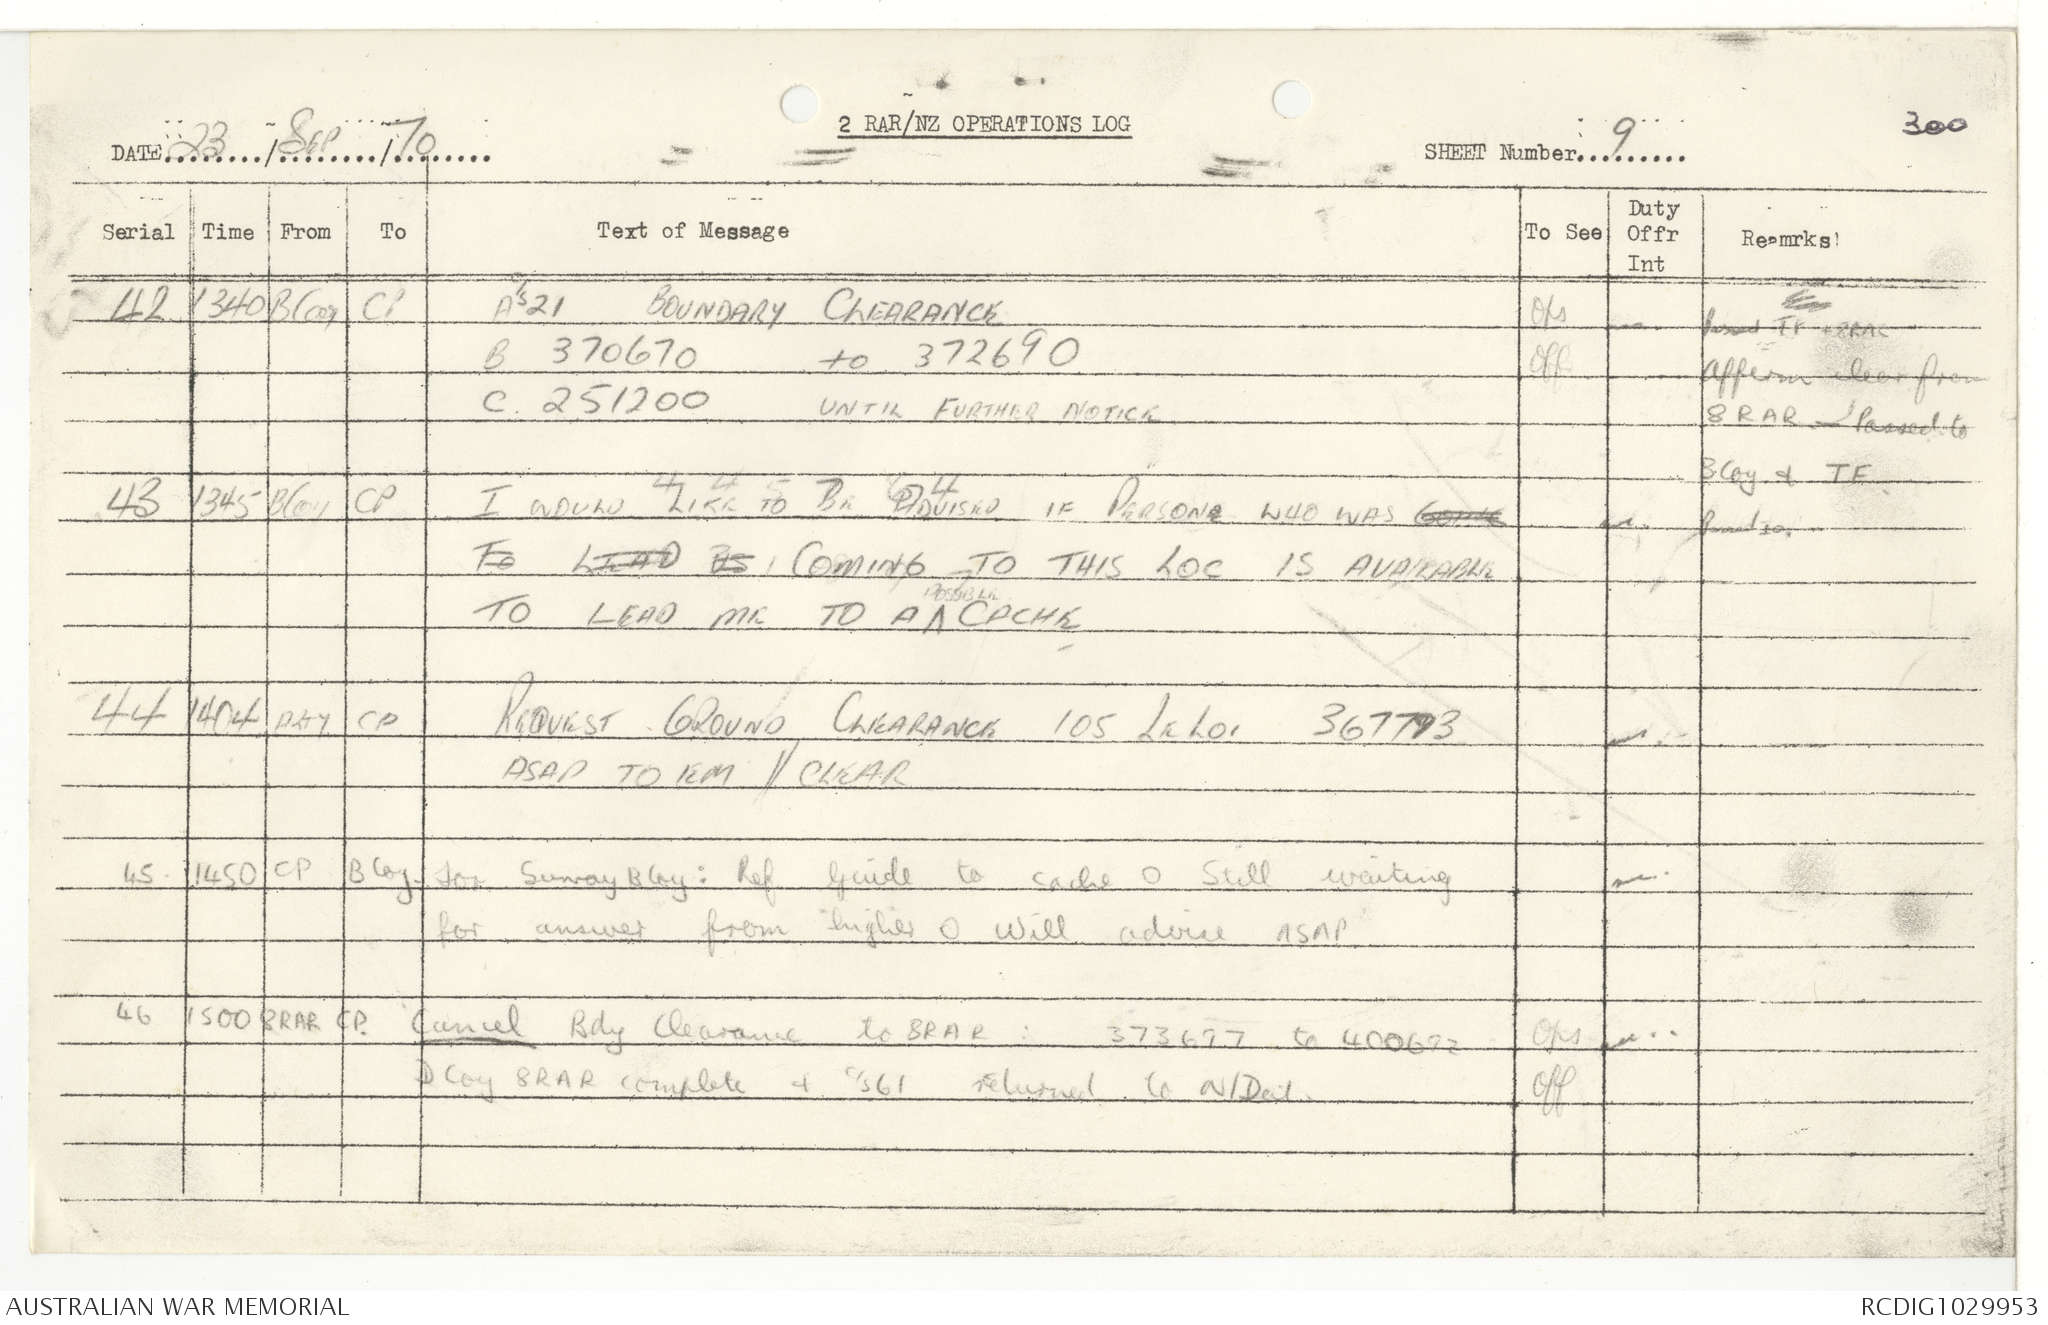 2 RAR/NZ OPERATIONS LOG
300
DATE 23 / Sep / 70
SHEET Number 9
Serial Time From To Text of Message To See Duty Offr Int Remarks!
42 1340 B Coy CP A 21 BOUNDARY CLEARANCE Ops TF + 8RAR
B 370670 to 372690 Off Affirm clear from
C. 251200 UNTIL FURTHER NOTICE 8 RAR Passed to
B Coy & TF
43 1345 B Coy CP I WOULD LIKE TO BE ADVISED IF PERSONE WHO WAS
TO LEAD COMING TO THIS LOC IS AVAILABLE
TO LEAD ME TO A POSSIBLE CACHE
44 1404 ARTY CP REQUEST GROUND CLEARANCE 105 LE LOI 367793
ASAP TO EM // CLEAR
45 1450 CP B Coy for Sunray B Coy: Ref guide to cache O Still waiting
for answer from higher O Will advise ASAP
46 1500 8RAR CP. Cancel Bdy Clearance to 8RAR : 373677 to 400672 Ops
D Coy 8RAR complete + C/S61 returned to N/Dat. Off
AUSTRALIAN WAR MEMORIAL
RCDIG1029953